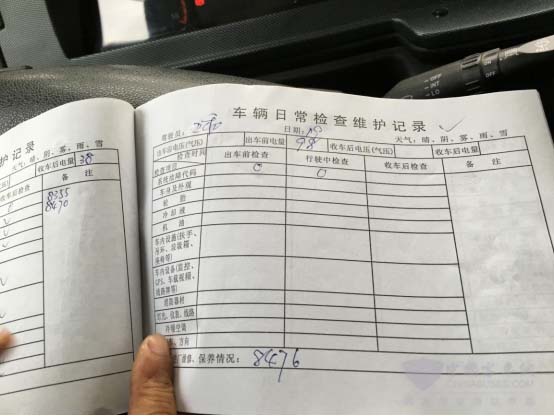 护记录
天气：晴、阴、雾、雨、雪
收车后电量 38
收车后检查 备 注
8355
8470
车辆日常检查维护记录
驾驶员： 日期：19
天气：晴、阴、雾、雨、雪
出车前电压(气压) 出车前电量 98 收车后电压(气压) 收车后电量
检查时间 出车前检查 行驶中检查 收车后检查 备 注
检查项目
系统故障代码 0 0
车身及外观
轮 胎
冷 却 液
机 油
车内设施(扶手、
吊环、垃圾箱、
座椅等)
车内设备(监控、
GPS、车载视频、
线路牌等)
消防器材
灯光、仪表、线路
冷暖空调
方向
保养情况： 8476
OFF
OFF
LO